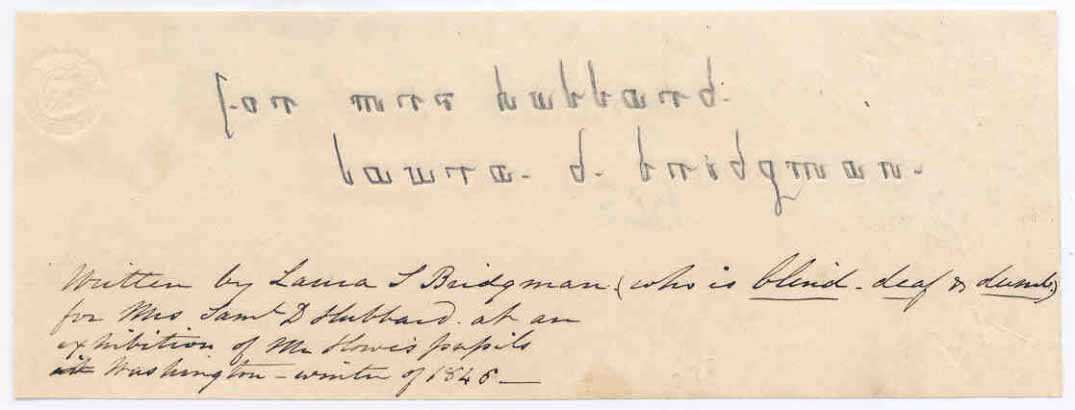 for mrs hubbard.
laura. d. bridgman.
Written by Laura S Bridgman (who is blind - deaf & dumb)
for Mrs Saml D Hubbard. at an
exhibition of Mr Howe's pupils
at Washington - winter of 1846 —